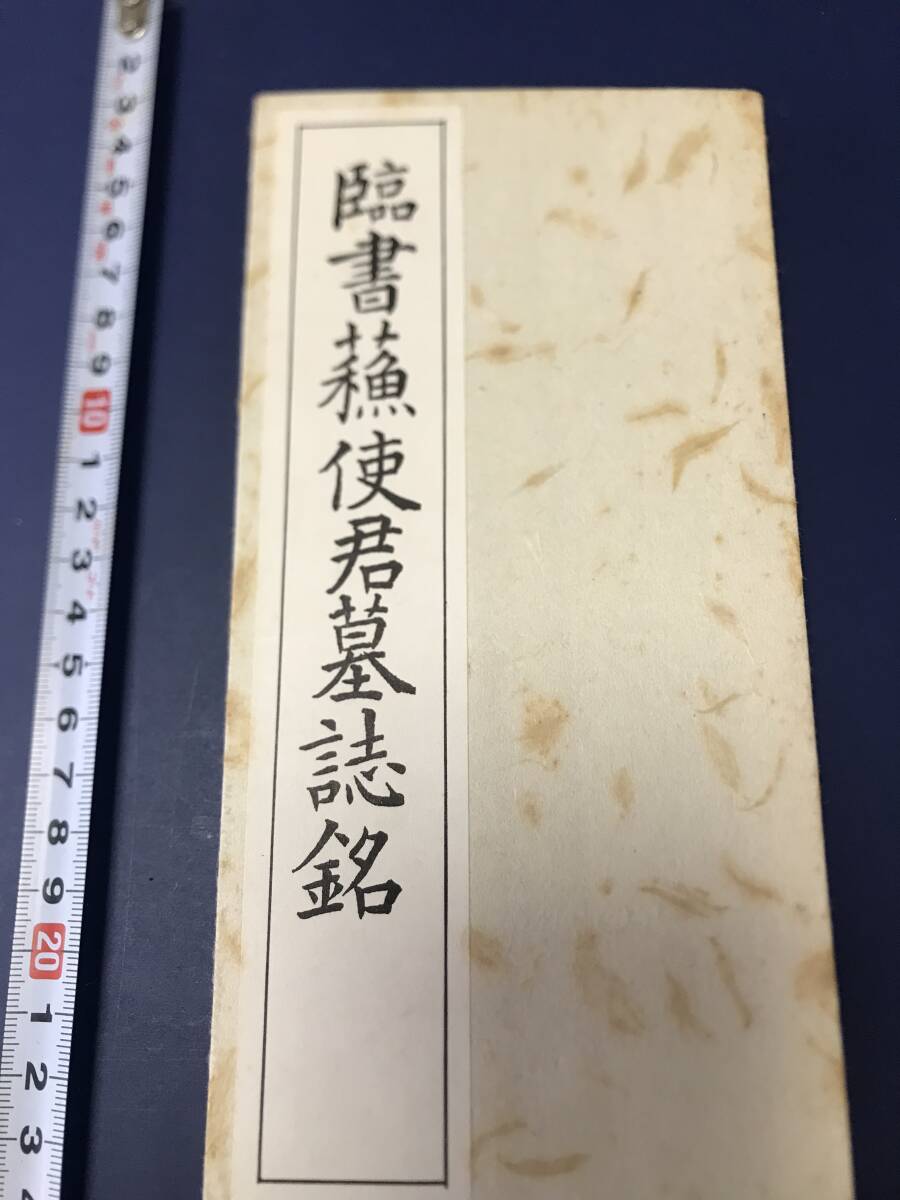 臨書蘓使君墓誌銘
2 3 4 5 6 7 8 9 10 1 2 3 4 5 6 7 8 9 20 1 2 3